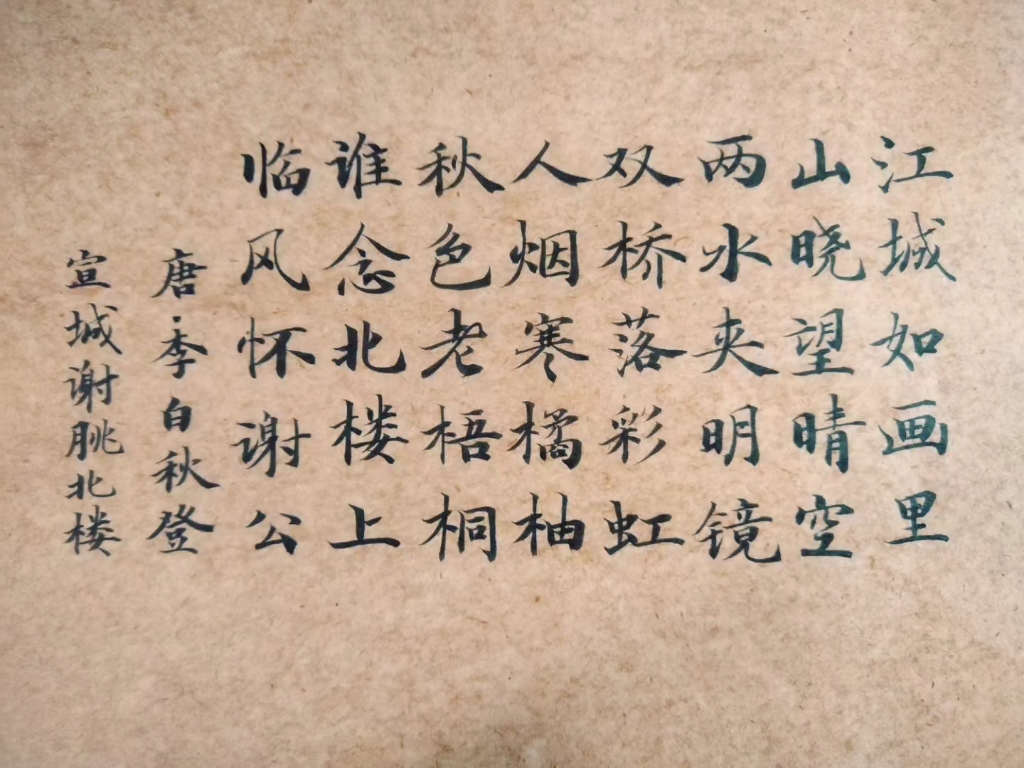 江城如画里
山晓望晴空
两水夹明镜
双桥落彩虹
人烟寒橘柚
秋色老梧桐
谁念北楼上
临风怀谢公
唐·李白秋登
宣城谢朓北楼